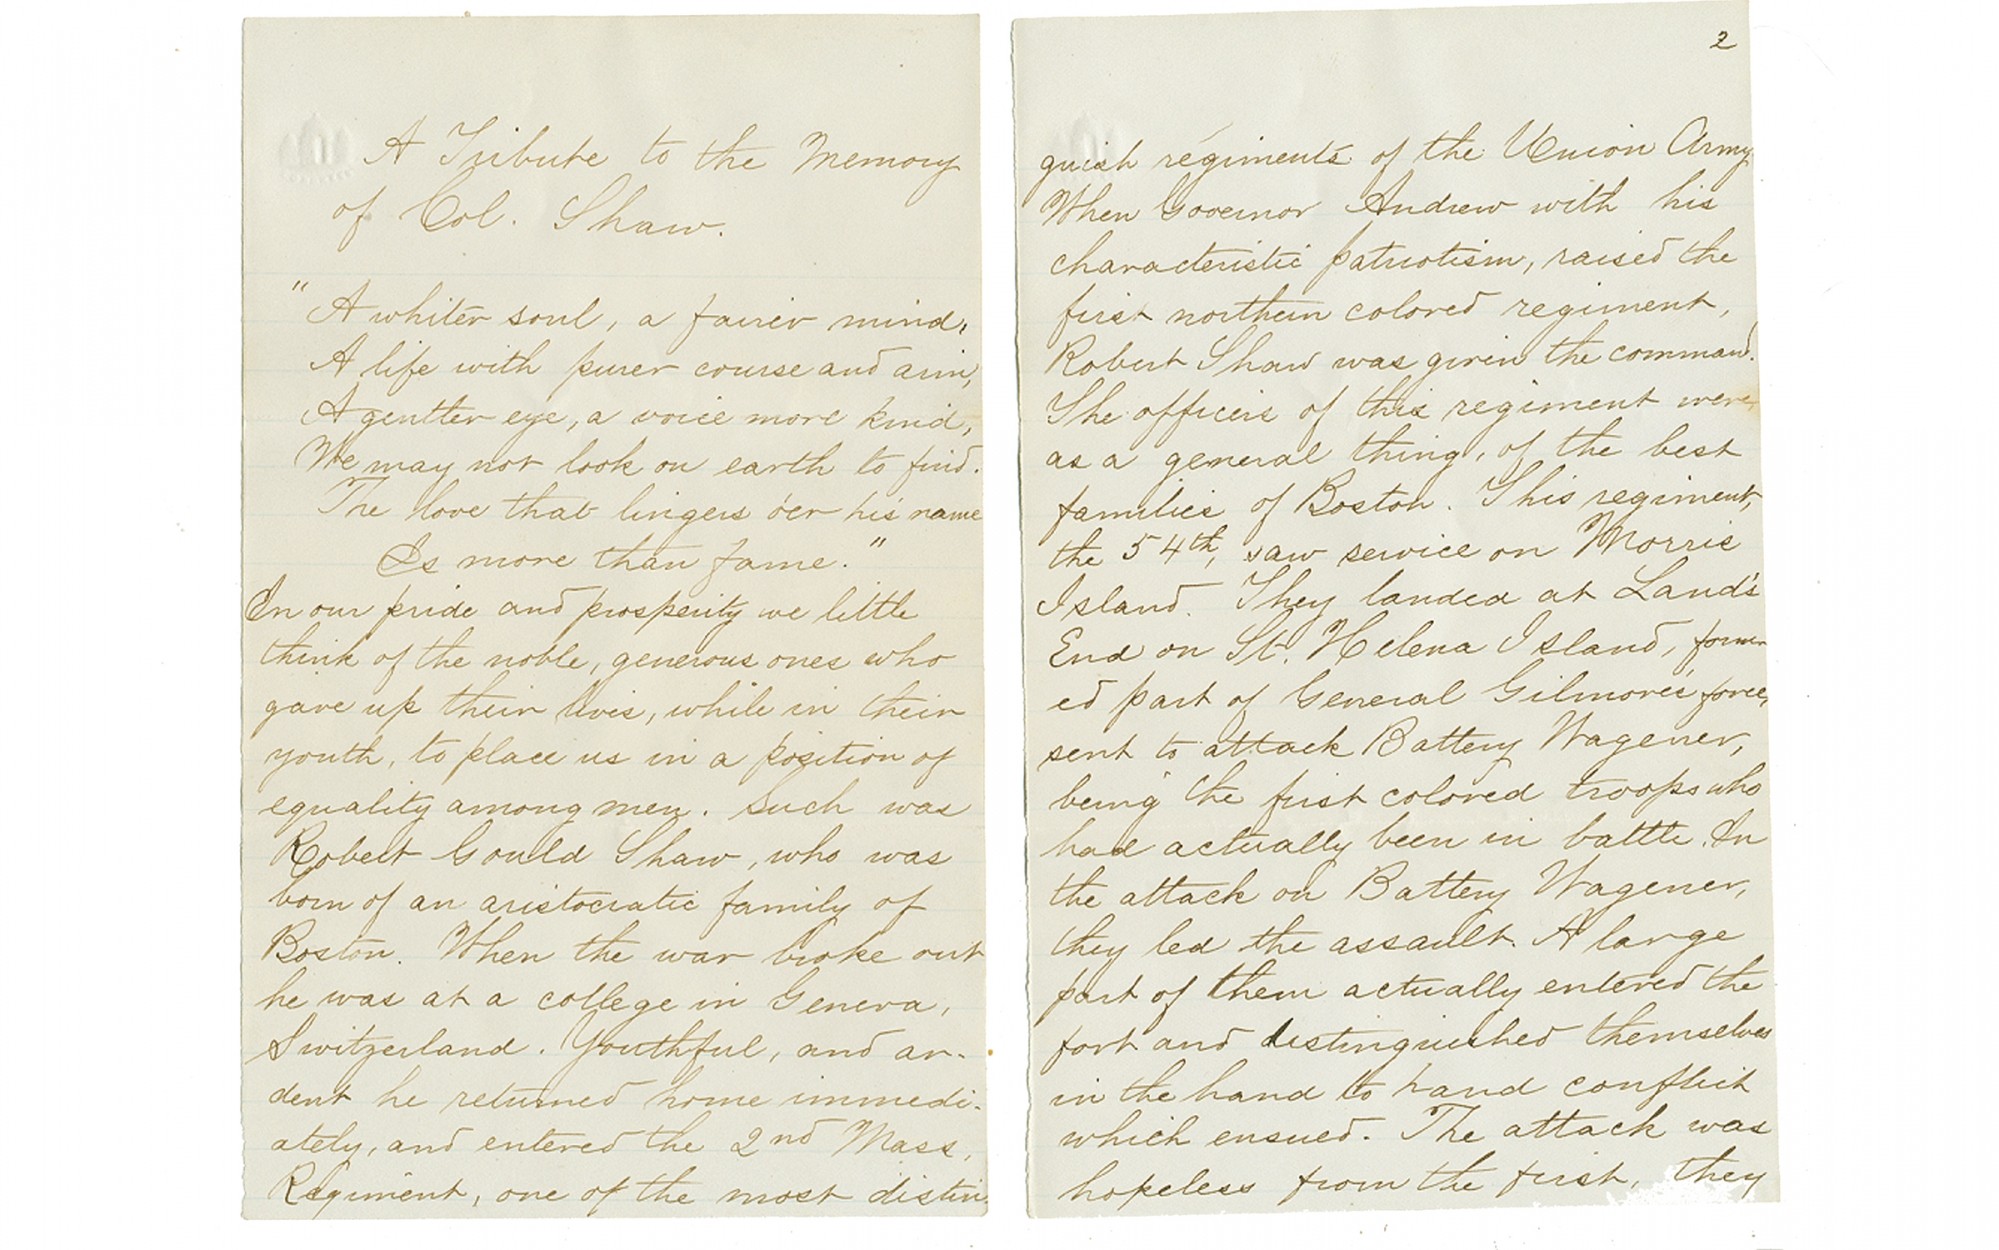 A Tribute to the Memory
of Col. Shaw.
"A whiter soul, a fairer mind,
A life with purer course and aim,
A gentler eye, a voice more kind,
We may not look on earth to find.
The love that lingers o'er his name
Is more than fame."
In our pride and prosperity we little
think of the noble, generous ones who
gave up their lives, while in their
youth, to place us in a position of
equality among men. Such was
Robert Gould Shaw, who was
born of an aristocratic family of
Boston. When the war broke out
he was at a college in Geneva,
Switzerland. Youthful, and ar-
dent he returned home immedi-
ately, and entered the 2nd Mass.
Regiment, one of the most distin
2
guish regiments of the Union Army
When Governor Andrew with his
characteristic patriotism, raised the
first northern colored regiment,
Robert Shaw was given the command.
The officers of this regiment were,
as a general thing, of the best
families of Boston. This regiment,
the 54th, saw service on Morris
Island. They landed at Land's
End on St. Helena Island, form
ed part of General Gilmore's force,
sent to attack Battery Wagener,
being the first colored troops who
had actually been in battle. In
the attack on Battery Wagener,
they led the assault. A large
part of them actually entered the
fort and distinguished themselves
in the hand to hand conflict
which ensued. The attack was
hopeless from the first, they